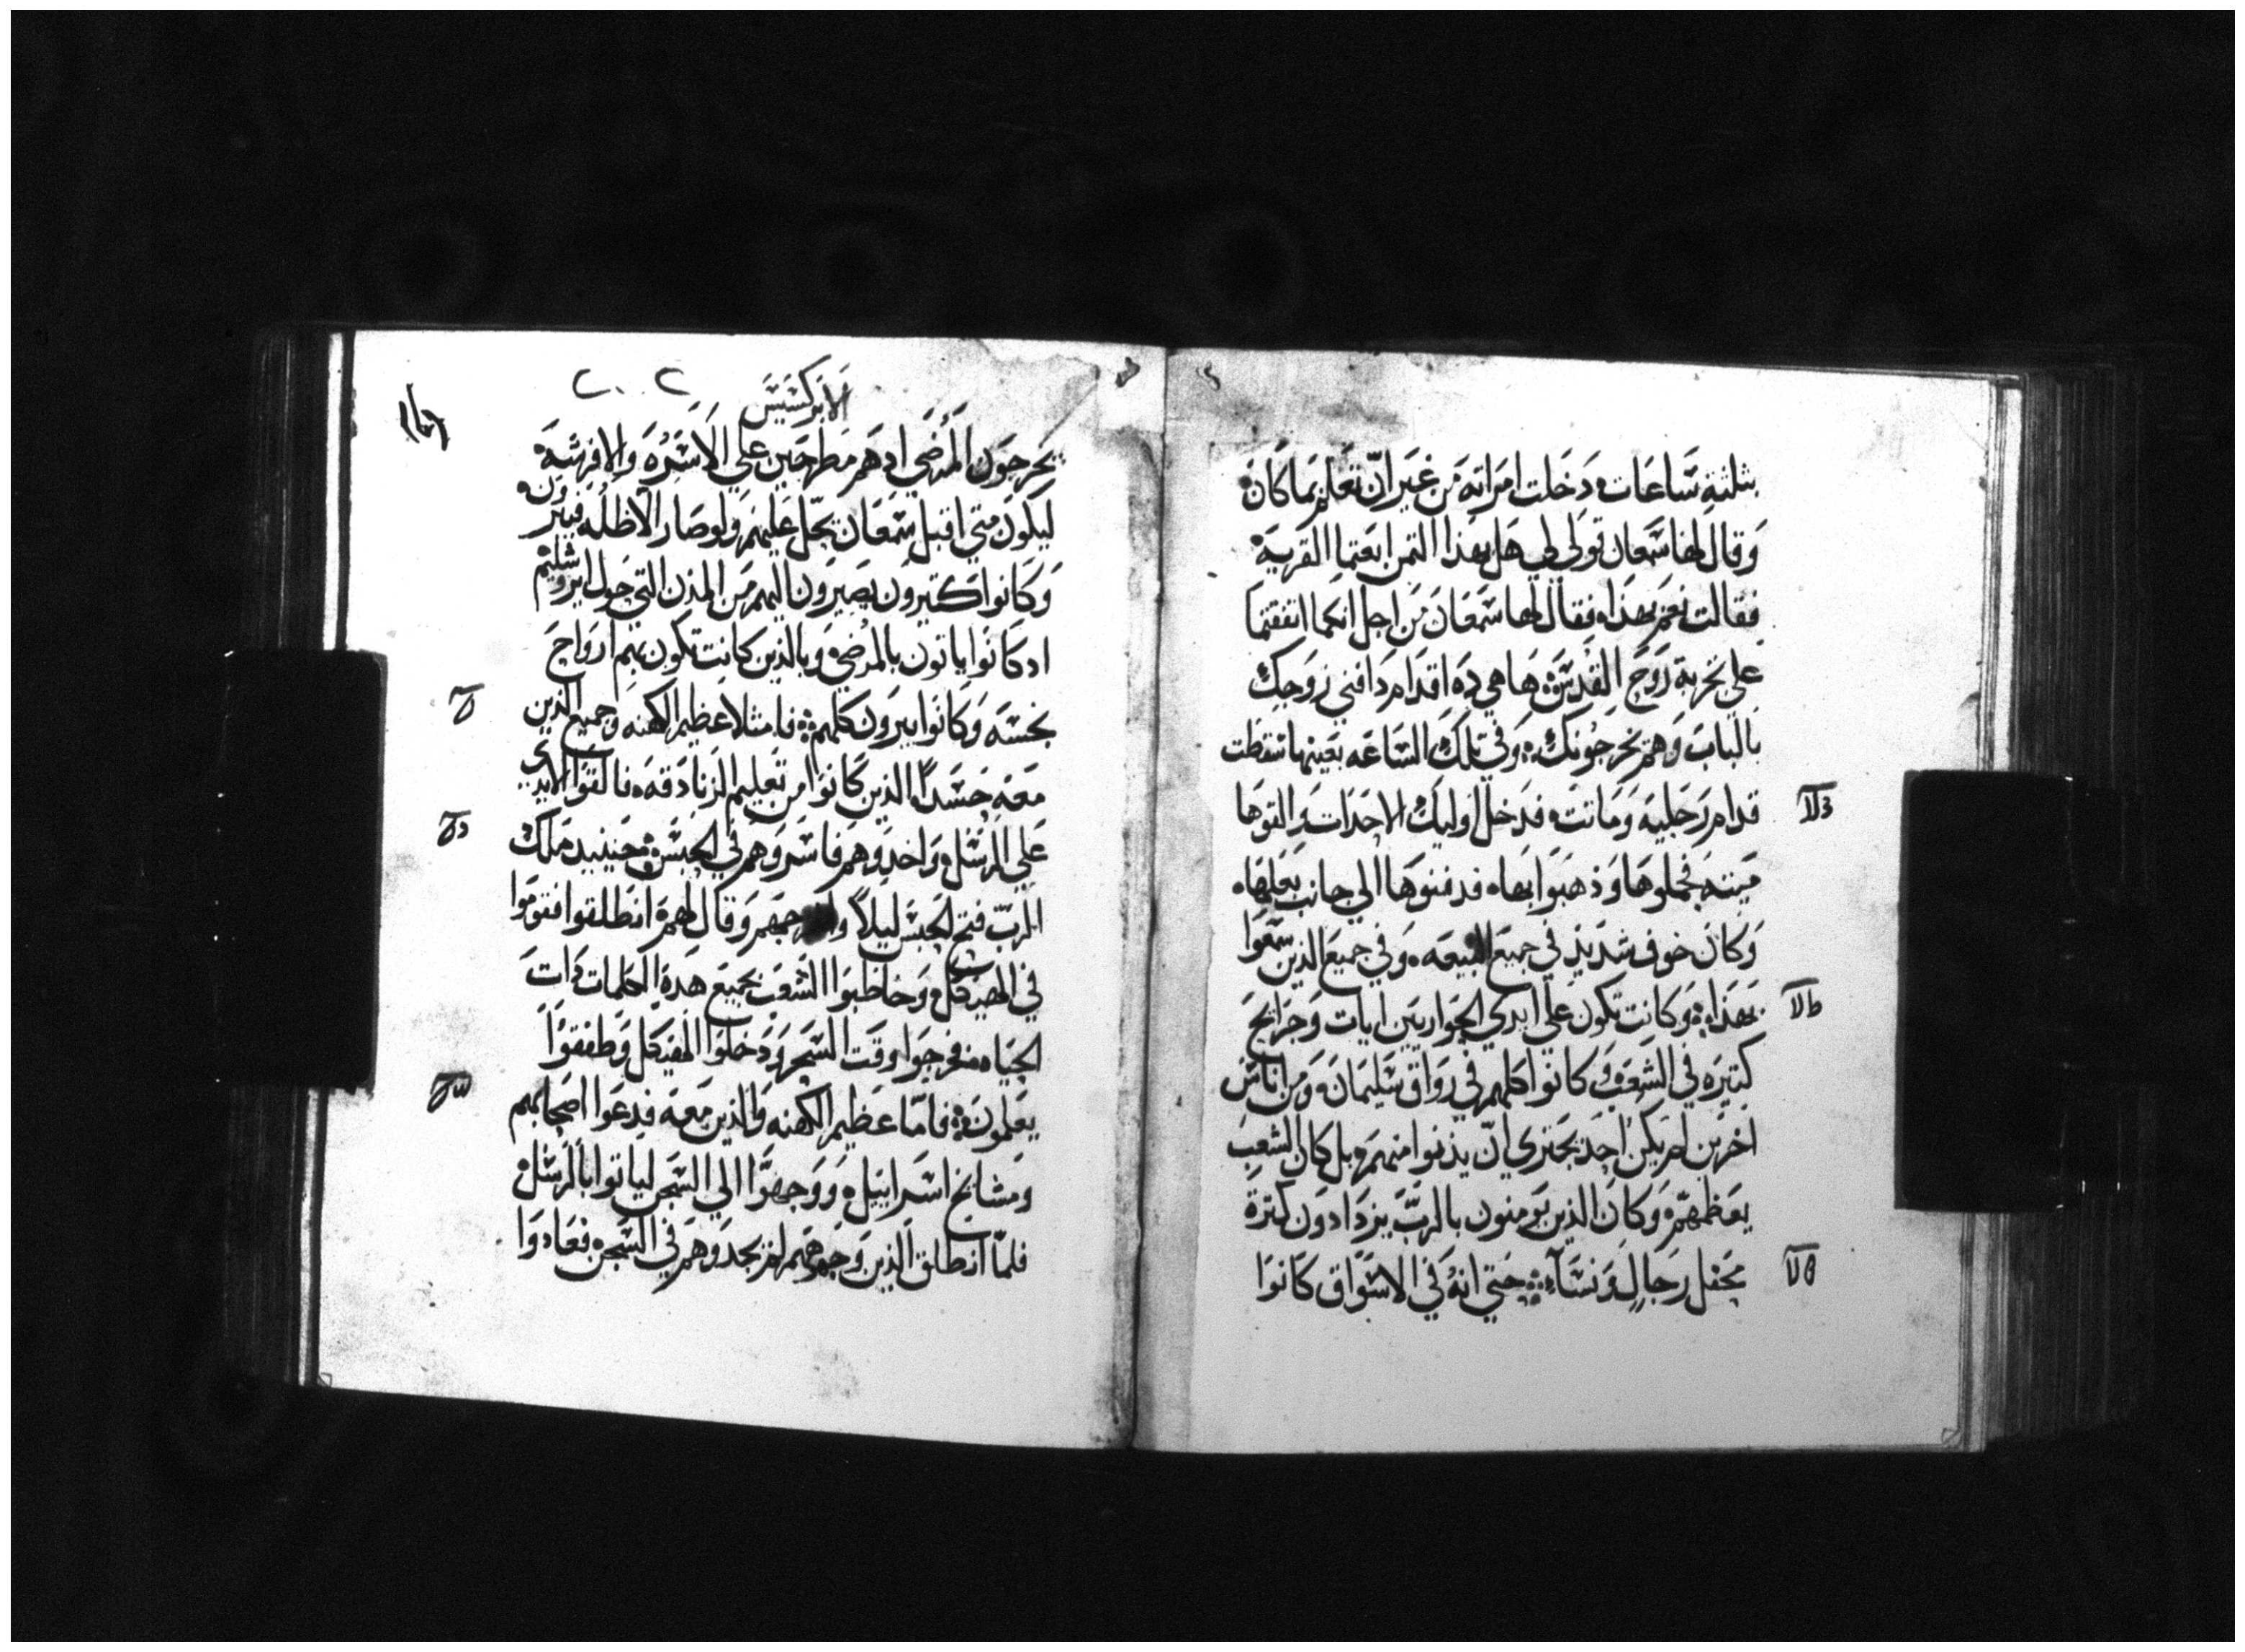 بثلثة ساعات دخلت امراته من غير ان تعلم بما كان
وقال لها سمعان قولي لي هل بهذا الثمن ابعتما القرية
فقالت نعم بهذا فقال لها سمعان من اجل انكما اتفقتما
علي تجربة روح القدس ها هي ده اقدام دافني زوجك
بالباب وهم يخرجونك وفي تلك الساعه بعينها سقطت
قدام رجليه وماتت فدخل اوليك الاحداث والقوها
ميته فحملوها وذهبوا بها فدفنوها الي جانب بعلها
وكان خوف شديد في جميع البيعه وفي جميع الذين سمعوا
بهذا وكانت تكون علي ايدي الحواريين ايات وجرايح
كثيره في الشعب وكانوا كلهم في رواق سليمان ومن اناس
اخرين لم يكن احد يجتري ان يدنوا منهم بل كان الشعب
يعظمهم وكان الذين يومنون بالرب يزدادون كثرة
محفل رجال ونساء حتي انه في الاسواق كانوا
الابركسيس
يخرجون المرضي اد هم مطرحين علي الاسره والافرشة
ليكون متي اقبل سمعان تحل عليهم ولو صار الاظله فيبرون
وكانوا كثيرون يصيرون اليهم من المدن التي حول ايروشليم
اد كانوا ياتون بالمرضي وبالذين كانت تكون بهم ارواح
نجسه وكانوا يبرون كلهم فامتلا عظيم الكهنه وجميع الذين
معه حسدا الذين كانوا من تعليم الزنادقه فالقوا الايدي
علي الرسل واخدوهم فاسروهم في الحبس حينيد ملك
الرب فتح الحبس ليلا واخرجهم وقال لهم انطلقوا فقوموا
في الهيكل وخاطبوا الشعب بجميع هده الكلمات دات
الحياه فخرجوا وقت السحر ودخلوا الهيكل وطفقوا
يعلمون فاما عظيم الكهنه والذين معه فدعوا اصحابهم
ومشايخ اسراييل ووجهوا الي السجن لياتوا بالرسل
فلما انطلق الذين وجهوهم لم يجدوهم في السجن فعادوا